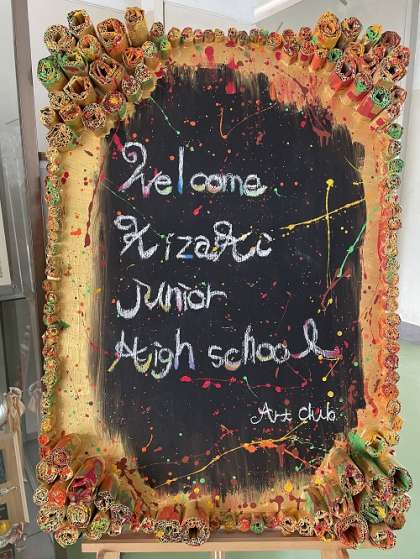 Welcome
Kizaki
Junior
High school
Art club